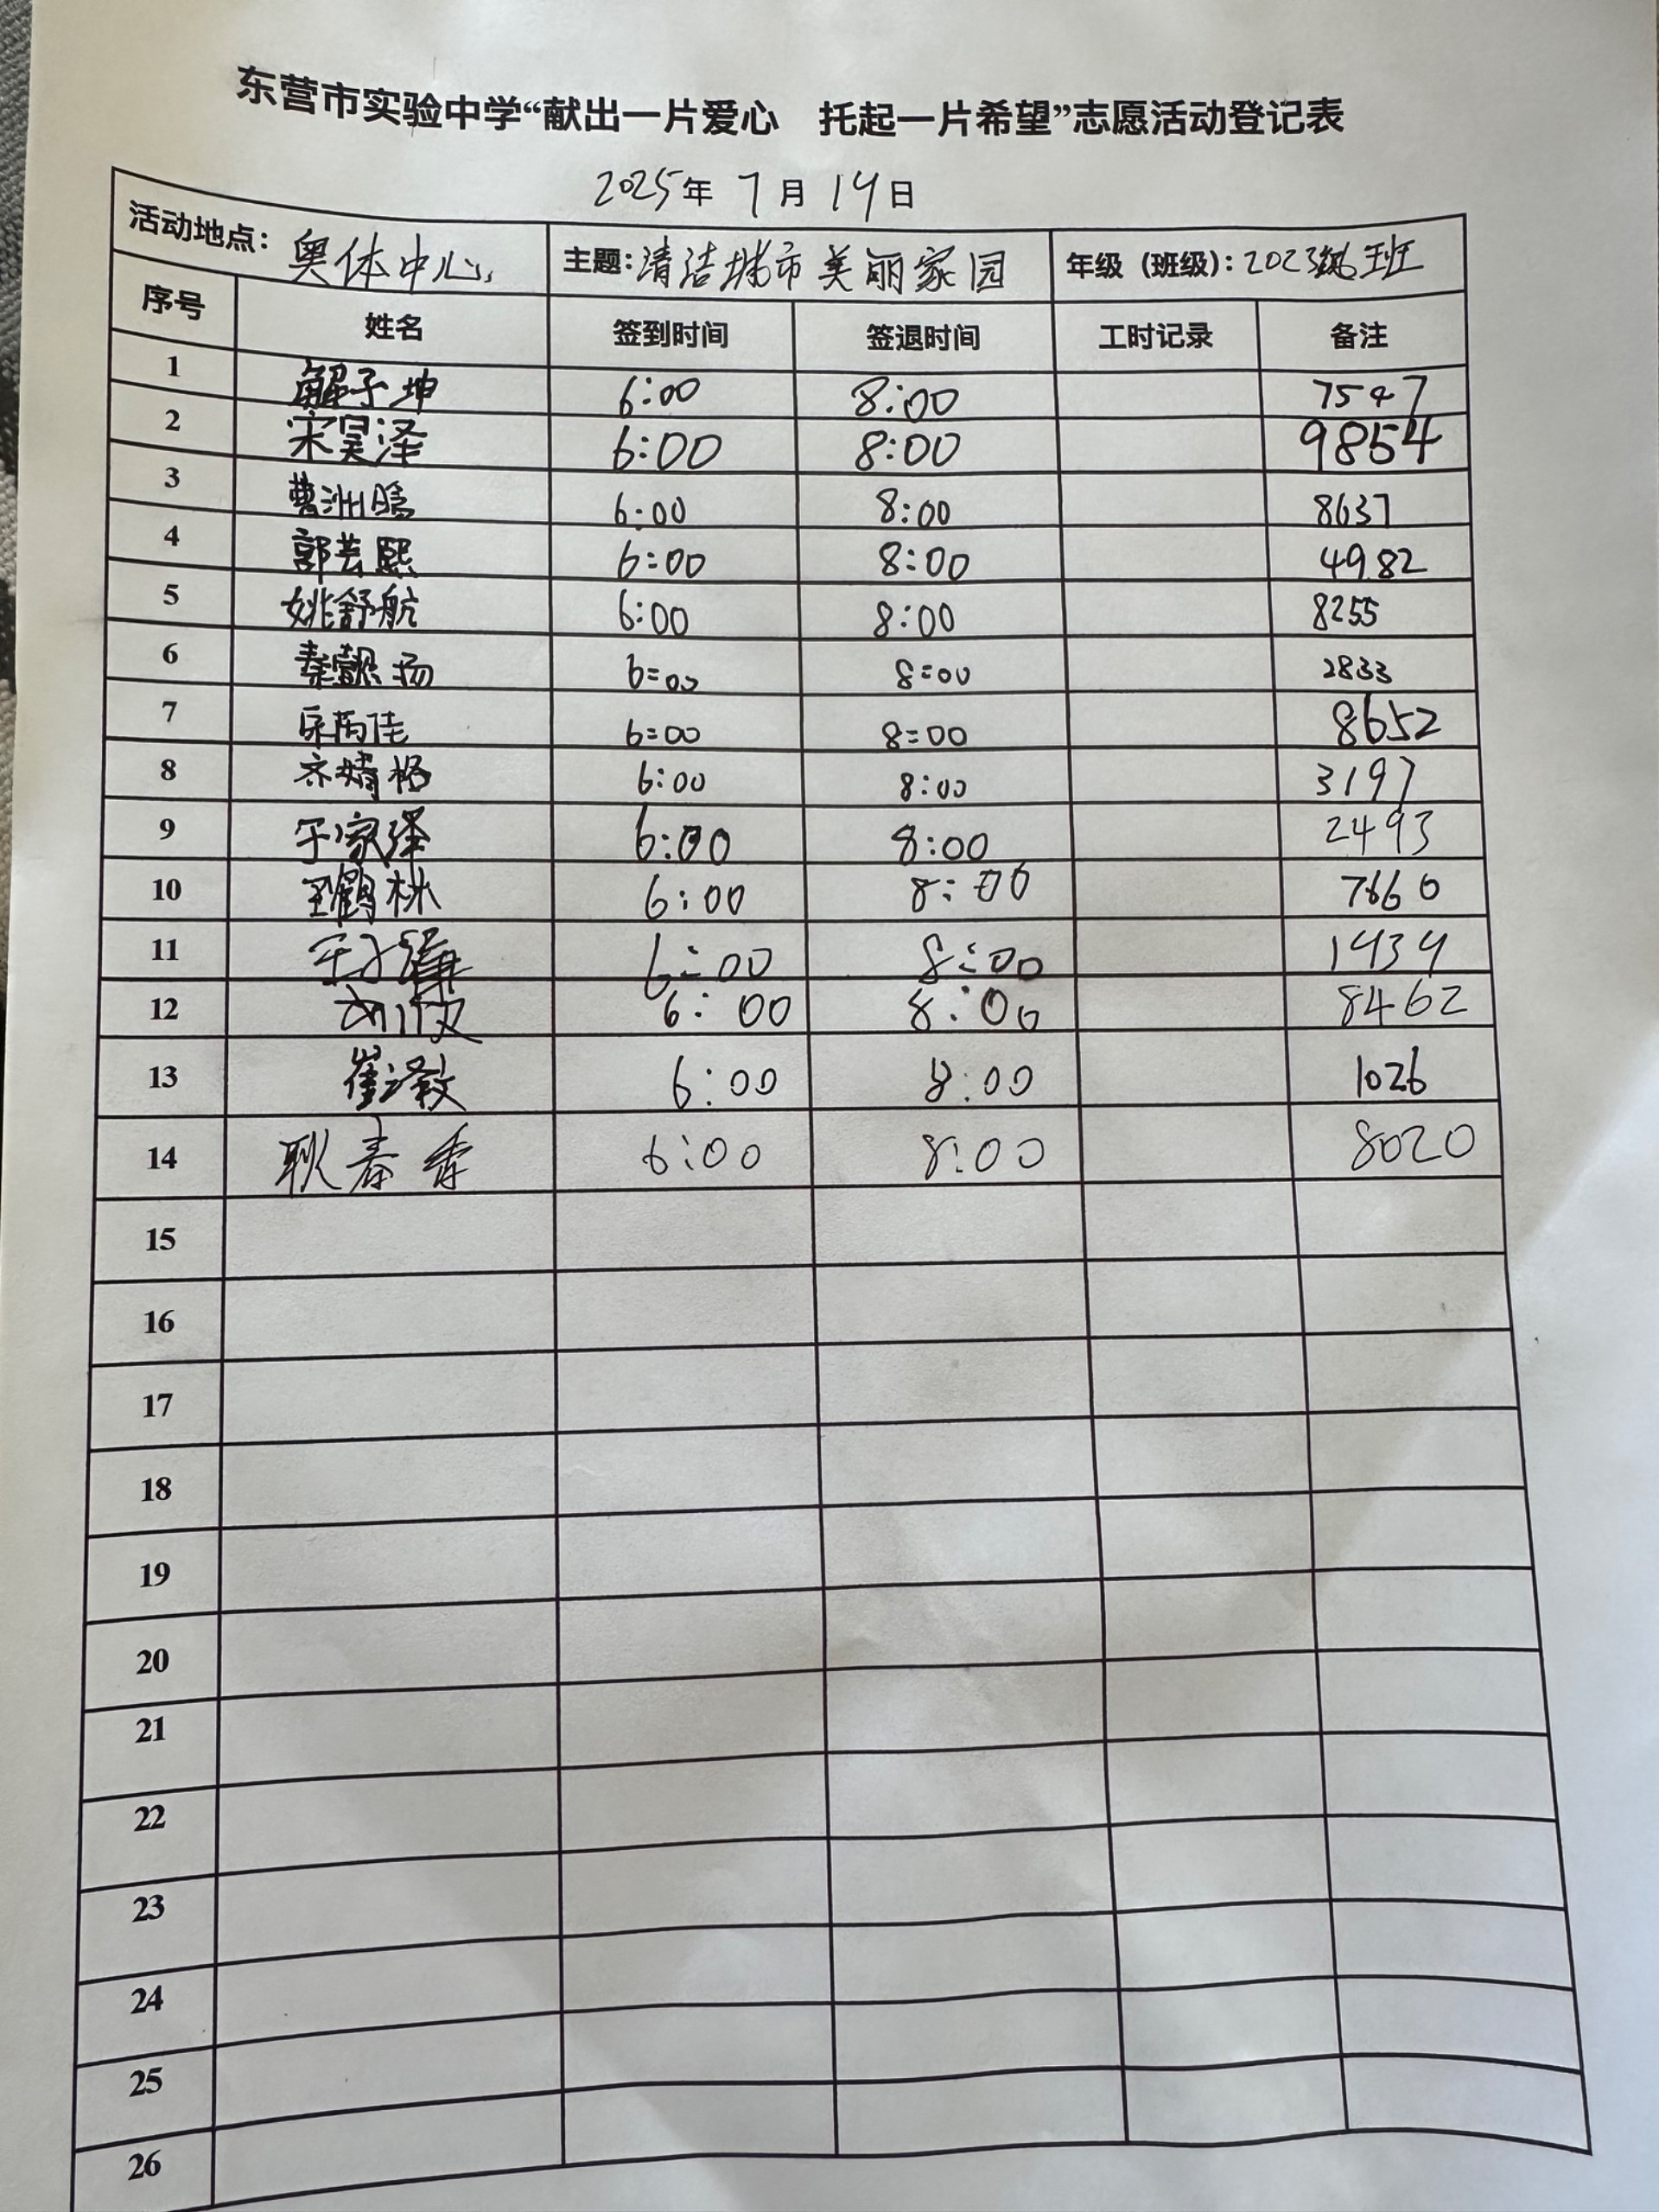 东营市实验中学“献出一片爱心 托起一片希望”志愿活动登记表
2025年 7月 14日
活动地点：奥体中心 主题：清洁城市美丽家园 年级（班级）：2023级 班
序号 姓名 签到时间 签退时间 工时记录 备注
1 解子坤 6:00 8:00 7547
2 宋昊泽 6:00 8:00 9854
3 曹洲 6:00 8:00 8637
4 郭芸熙 6:00 8:00 4982
5 姚舒航 6:00 8:00 8255
6 秦懿扬 6:00 8:00 2833
7 佳 6:00 8:00 8652
8 齐婧格 6:00 8:00 3197
9 于家泽 6:00 8:00 2493
10 王鹤林 6:00 8:00 7660
11 6:00 8:00 1434
12 6:00 8:00 8462
13 崔泽 6:00 8:00 1026
14 耿春香 6:00 8:00 8020
15
16
17
18
19
20
21
22
23
24
25
26